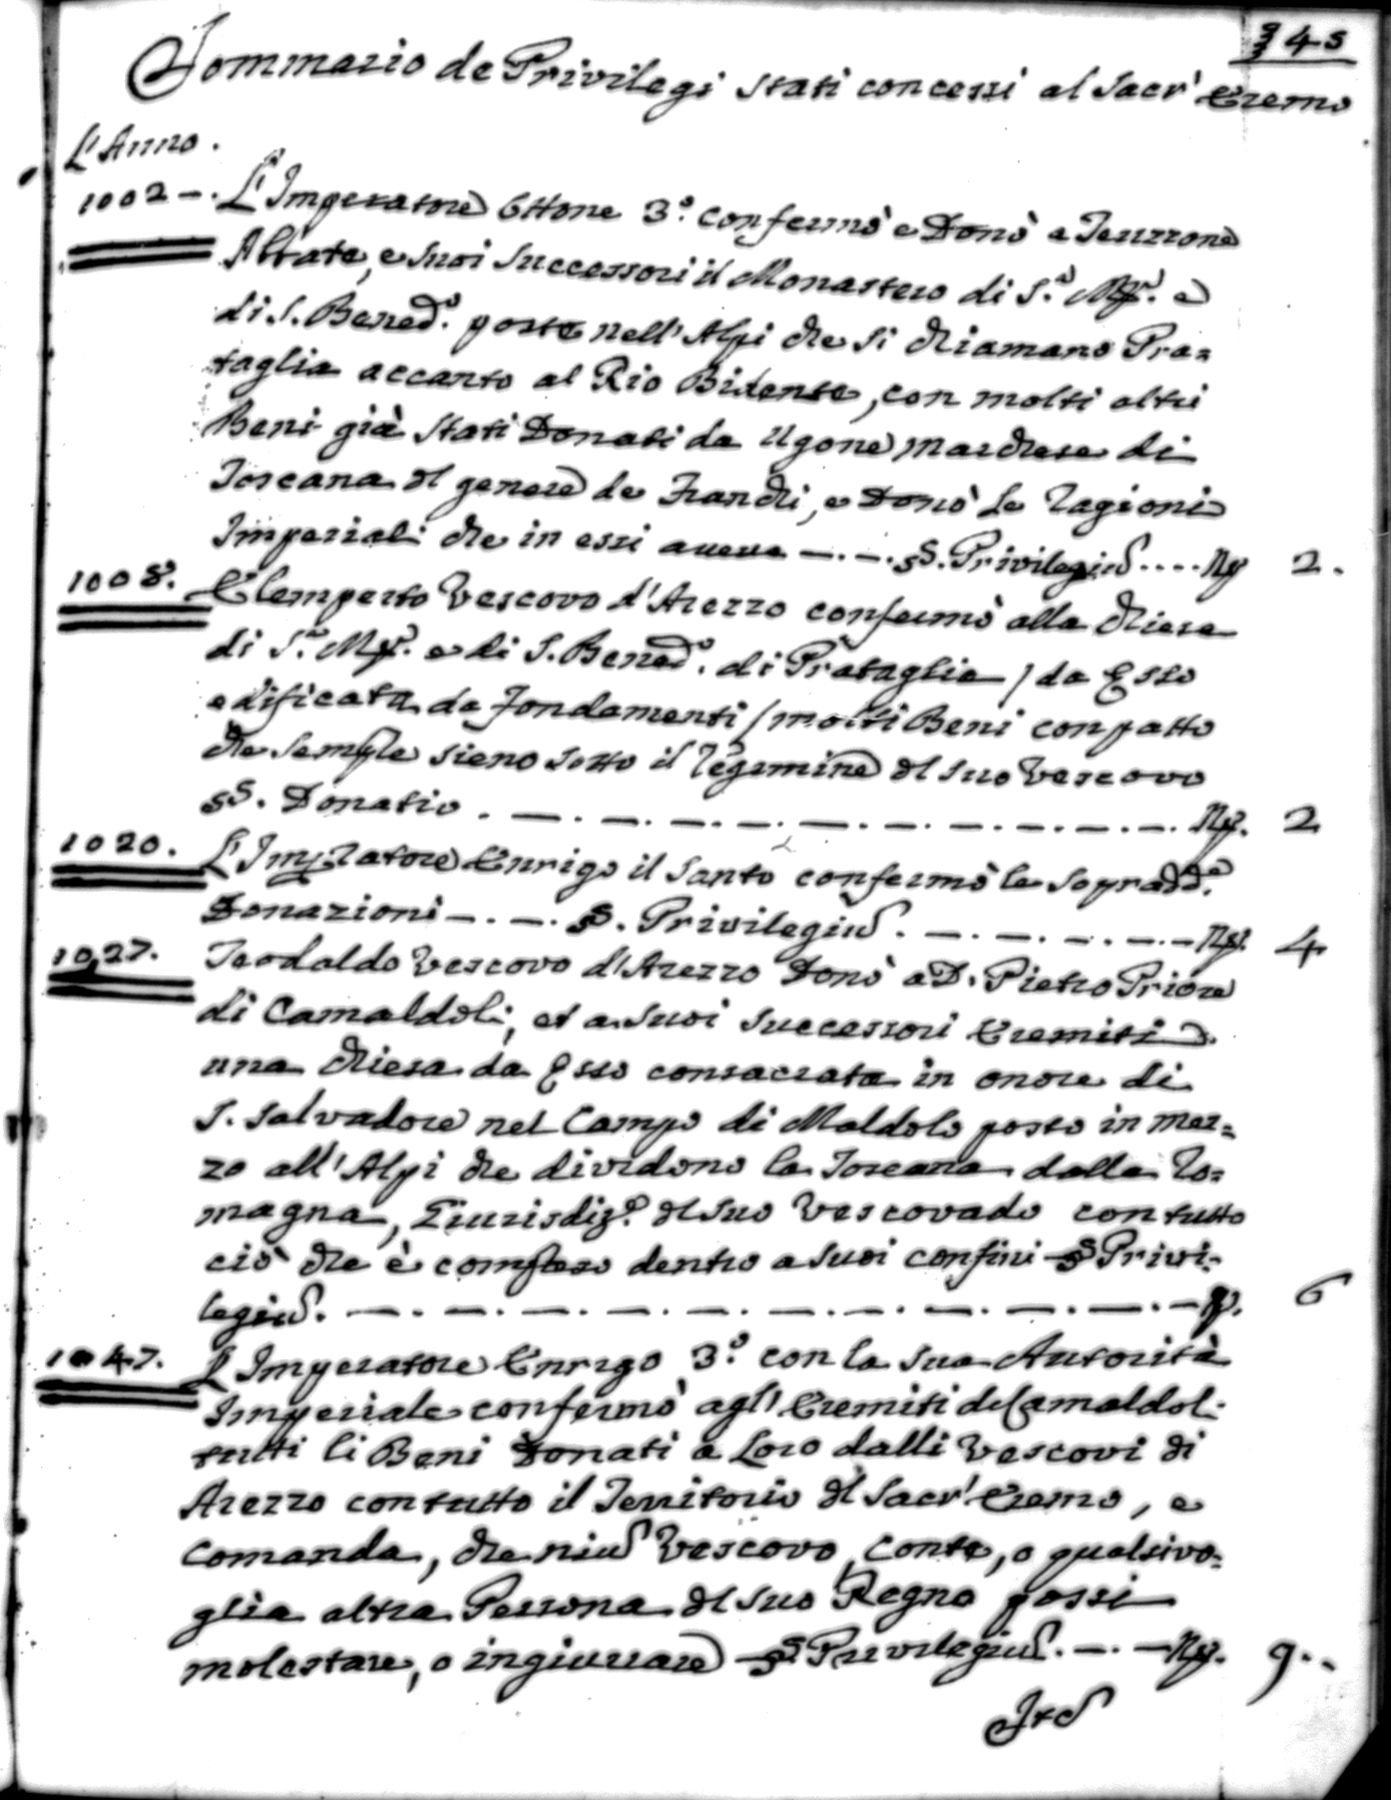 345
Sommario de Privilegi stati concessi al Sacr' Eremo
L'Anno.
1002 -. L'Imperatore Ottone 3.° confermò e Donò a Teuzzone
Abbate, e suoi successori il Monastero di S.ª Mª. e
di S. Bened.° posto nell'Alpi che si chiamano Pra=
taglia accanto al Rio Bidente, con molti altri
Beni già stati Donati da Ugone marchese di
Toscana del genere de Franchi, e Donò le ragioni
Imperiali che in essi aueua -.-. SS. Privilegiu .... Np 2.
1008. Elemperto Vescovo d'Arezzo confermò alla chiesa
di S.ª Mª. e di S. Bened.° di Prataglia / da Esso
edificata da Fondamenti / molti Beni con patto
che semple sieno sotto il regimine del suo Vescovo
SS. Donatio . -.-.-.-.-.-.-.-.-. Np. 2
1020. L'Imperatore Enrigo il Santo confermò le sopradd.e
Donazioni -.-. SS. Privilegiu . -.-.-.-. Np. 4
1027. Teodaldo Vescovo d'Arezzo Donò a D. Pietro Priore
di Camaldoli, et a suoi successori Eremiti
una chiesa da Esso consacrata in onore di
S. Salvadore nel Campo di Maldolo posto in mez=
zo all'Alpi che dividono la Toscana dalla Ro=
magna, Giurisdiz.e del suo Vescovado con tutto
ciò che è compreso dentro a suoi confini SS Privi-
legiu. -.-.-.-.-.-.-.-. p. 6
1047. L'Imperatore Enrigo 3.° con la sua Autorità
Imperiale confermò agl'Eremiti de Camaldoli
tutti li Beni Donati a Loro dalli Vescovi di
Arezzo con tutto il Territorio del Sacr' Eremo, e
comanda, che niu Vescovo, Conte, o qualsivo=
glia altra Persona del suo Regno possi
molestare, o ingiuriare SS Privilegiu. -.- Np. 9..